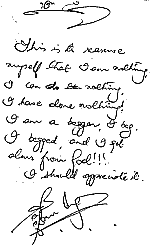 This is to reassure
myself that I am nothing,
I can do nothing,
I have done nothing!
I am a beggar, I beg.
I begged, and I got
alms from God!!!
I should appreciate it.